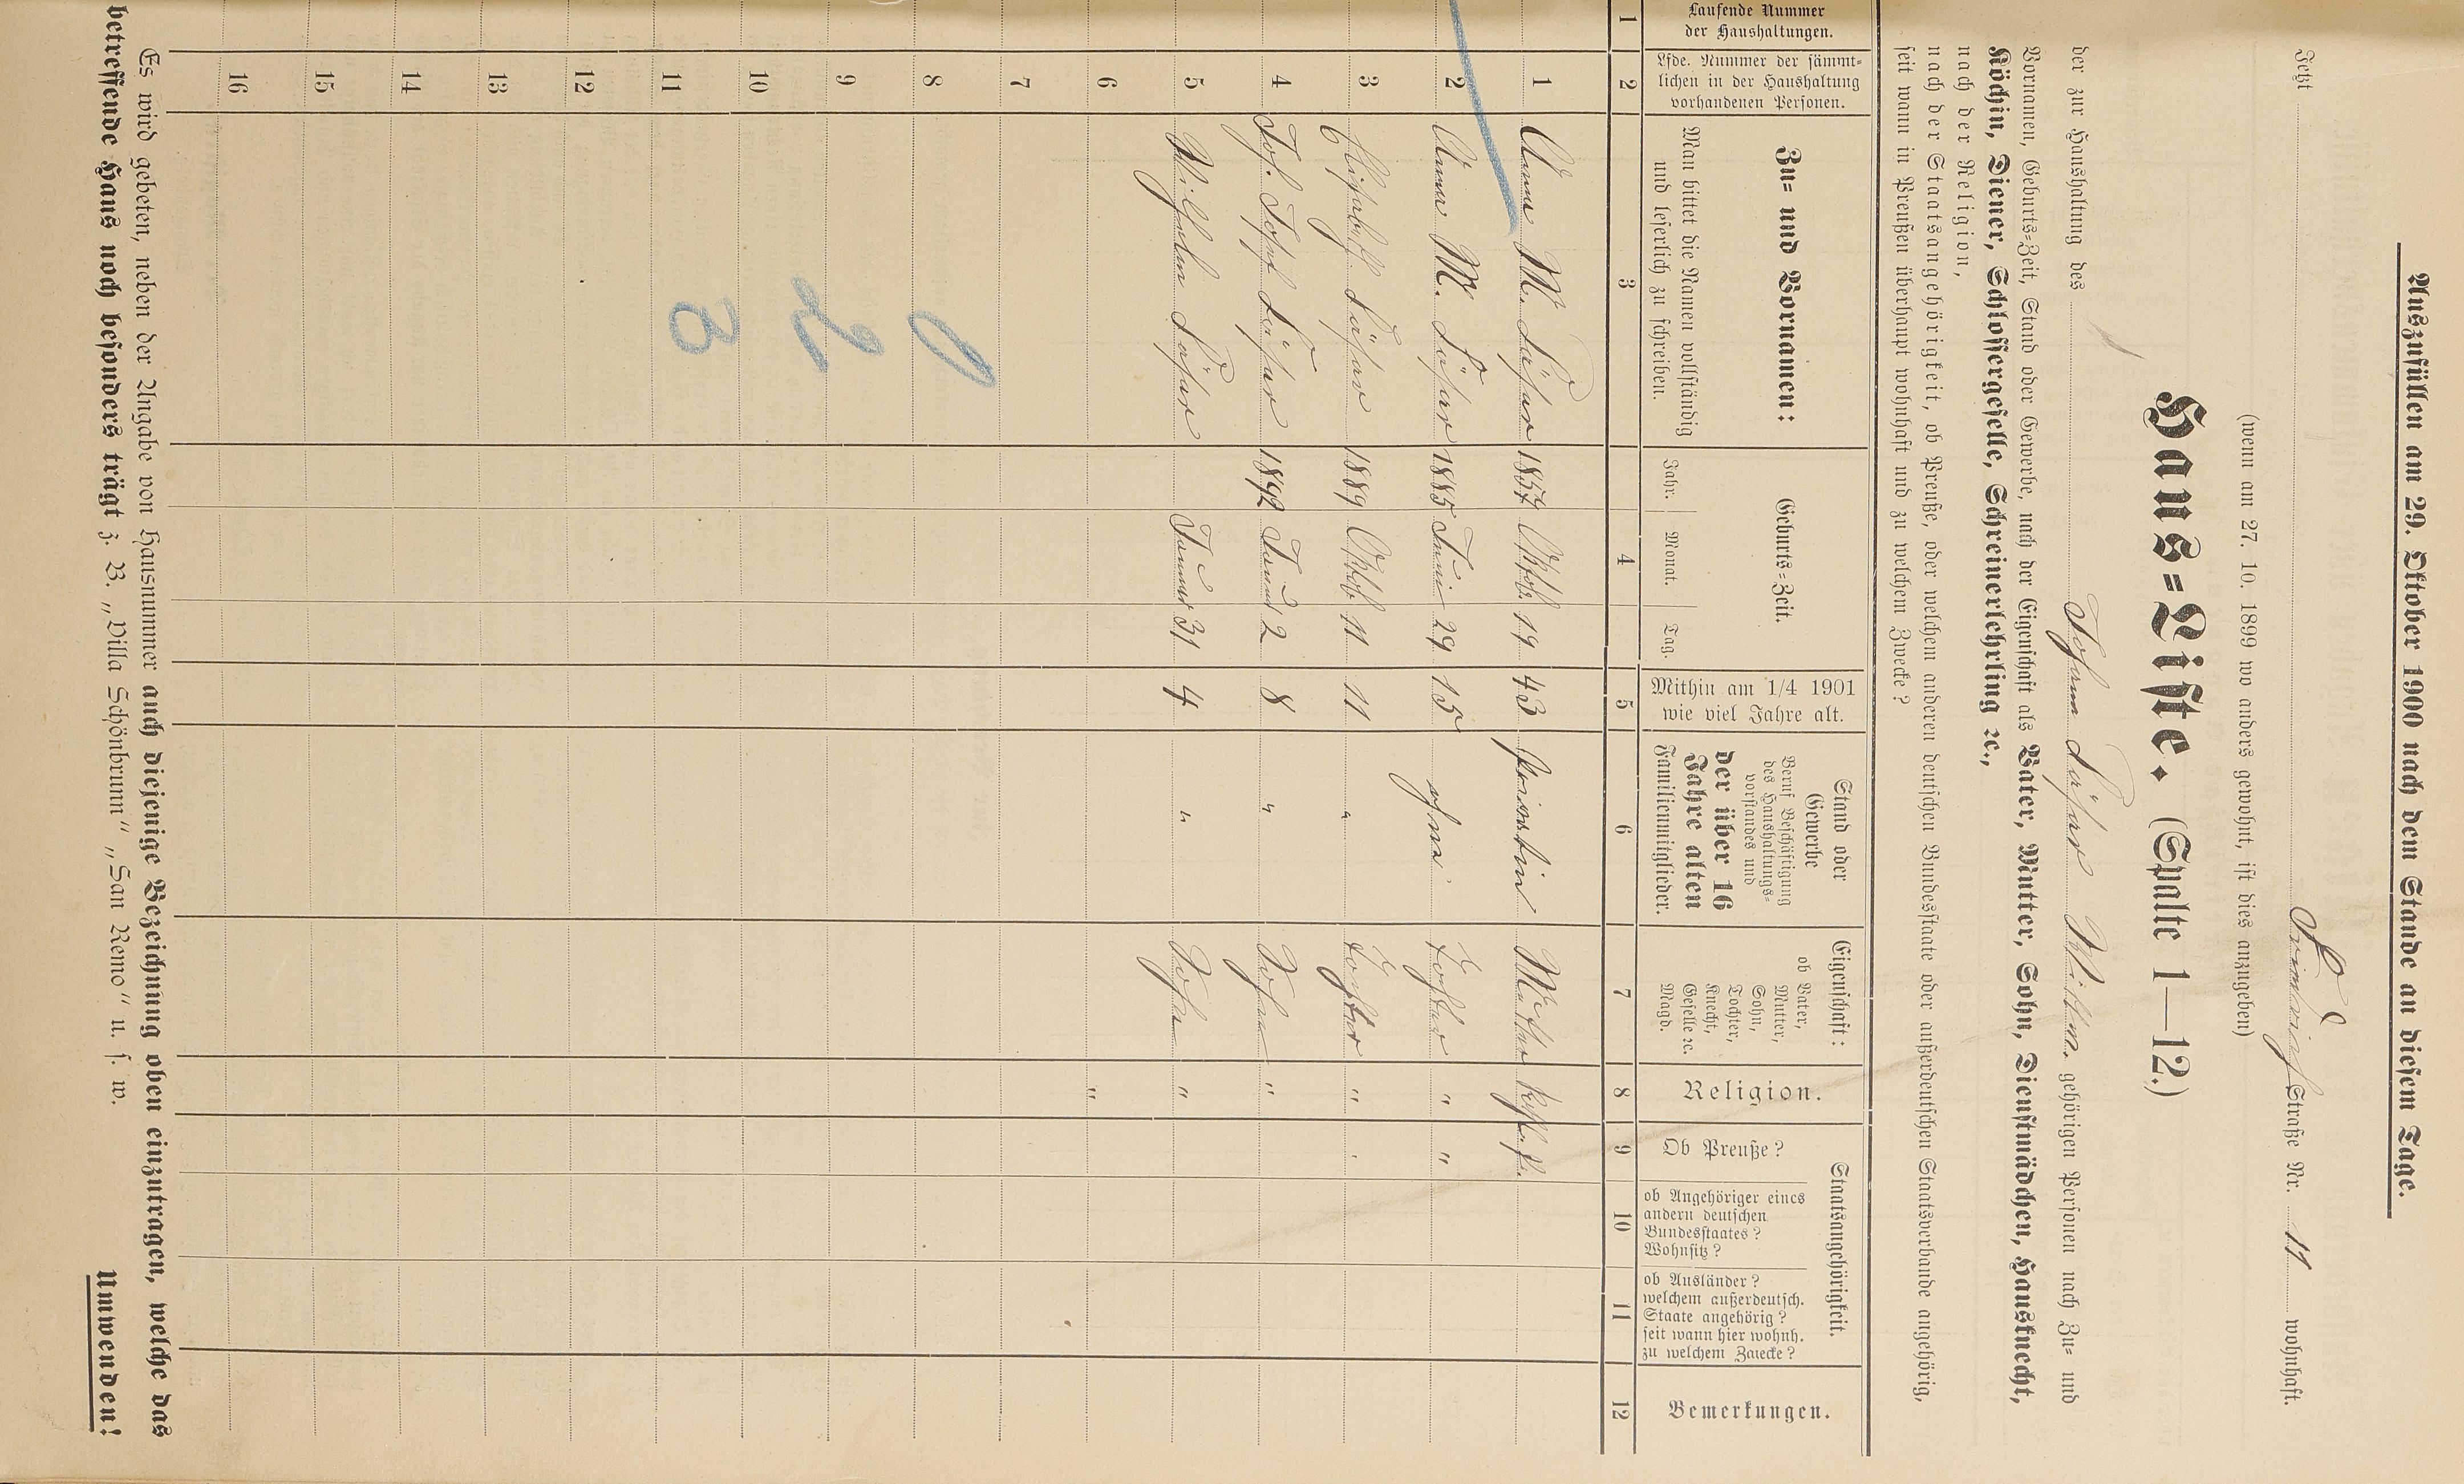 Auszufüllen am 29. Oktober 1900 nach dem Stande an diesem Tage.
Jetzt Straße Nr. 11 wohnhaft.
(wenn am 27. 10. 1899 wo anders gewohnt, ist dies anzugeben)
Haus=Liste. (Spalte 1—12.)
der zur Haushaltung des Johann Wittw. gehörigen Personen nach Zu= und
Vornamen, Geburts=Zeit, Stand oder Gewerbe, nach der Eigenschaft als Vater, Mutter, Sohn, Dienstmädchen, Hausknecht,
Köchin, Diener, Schlossergeselle, Schreinerlehrling ꝛc.,
nach der Religion,
nach der Staatsangehörigkeit, ob Preuße, oder welchem anderen deutschen Bundesstaate oder außerdeutschen Staatsverbande angehörig,
seit wann in Preußen überhaupt wohnhaft und zu welchem Zwecke?
Laufende Nummer der Haushaltungen.
Lfde. Nummer der sämmt=lichen in der Haushaltung vorhandenen Personen.
Zu= und Vornamen:
Man bittet die Namen vollständig und leserlich zu schreiben.
Geburts=Zeit.
Jahr. Monat. Tag.
Mithin am 1/4 1901 wie viel Jahre alt.
Stand oder Gewerbe
Beruf Beschäftigung des Haushaltungs=vorstandes und
der über 16 Jahre alten Familienmitglieder.
Eigenschaft:
ob Vater, Mutter, Sohn, Tochter, Knecht, Geselle ꝛc. Magd.
Religion.
Staatsangehörigkeit.
Ob Preuße?
ob Angehöriger eines andern deutschen Bundesstaates? Wohnsitz?
ob Ausländer? welchem außerdeutsch. Staate angehörig? seit wann hier wohnh. zu welchem Zwecke?
Bemerkungen.
1 2 3 4 5 6 7 8 9 10 11 12
1 Anna M. 1857 Oktb. 19 43 Mutter kath.
2 Anna M. 1885 Juni 29 15 ohne Tochter " "
3 Elisabeth 1889 Oktb. 11 11 " Tochter "
4 Joh. Josef 1892 2 8 " Sohn "
5 Wilhelm Januar 31 4 " Sohn "
6 "
7
8
9
10
11
12
13
14
15
16
1
2
3
Es wird gebeten, neben der Angabe von Hausnummer auch diejenige Bezeichnung oben einzutragen, welche das
betreffende Haus noch besonders trägt z. B. „Villa Schönbrunn" „San Remo" u. s. w.
Umwenden!